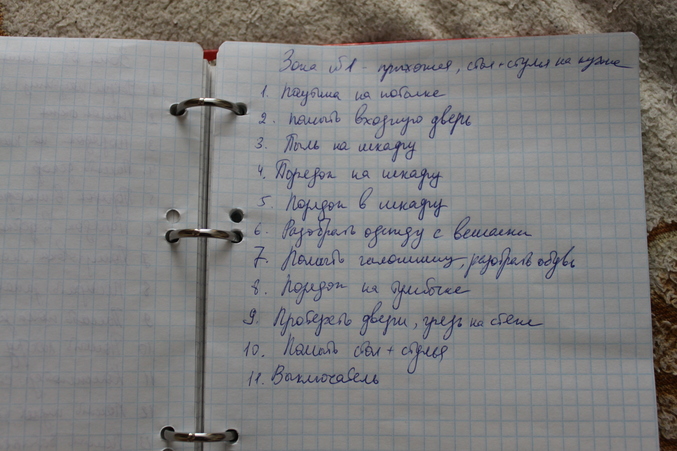 Зона №1 - прихожая, стол+стулья на кухне
1. Паутина на потолке
2. помыть входную дверь
3. Пыль на шкафу
4. Порядок на шкафу
5. Порядок в шкафу
6. Разобрать одежду с вешалки
7. Помыть галошницу, разобрать обувь
8. Порядок на тумбочке
9. Протереть двери, грязь на стене
10. Помыть стол + стулья
11. Выключатель